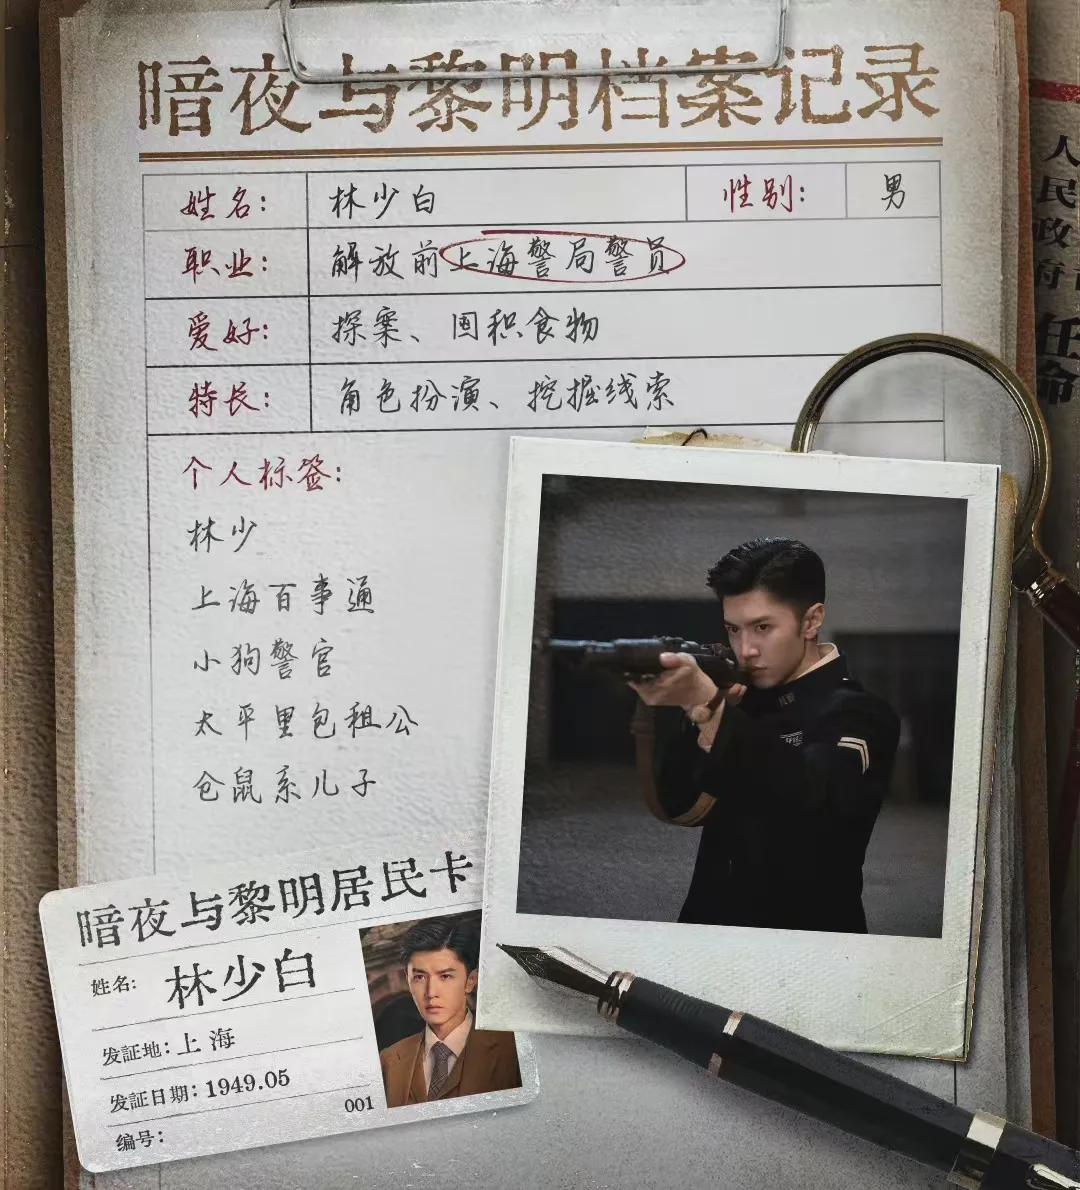 暗夜与黎明档案记录
姓名: 林少白 性别: 男
职业: 解放前上海警局警员
爱好: 探案、囤积食物
特长: 角色扮演、挖掘线索
个人标签:
林少
上海百事通
小狗警官
太平里包租公
仓鼠系儿子
暗夜与黎明居民卡
姓名: 林少白
发证地: 上海
发证日期: 1949.05
编号: 001
人民政府
任命